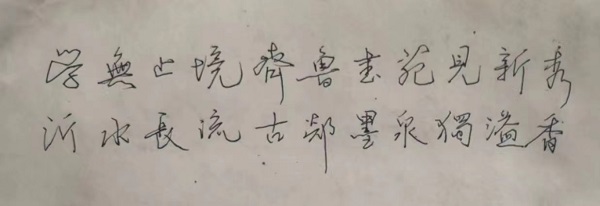 学無止境齊魯書苑見新秀
沂水長流古郯墨泉獨溢香